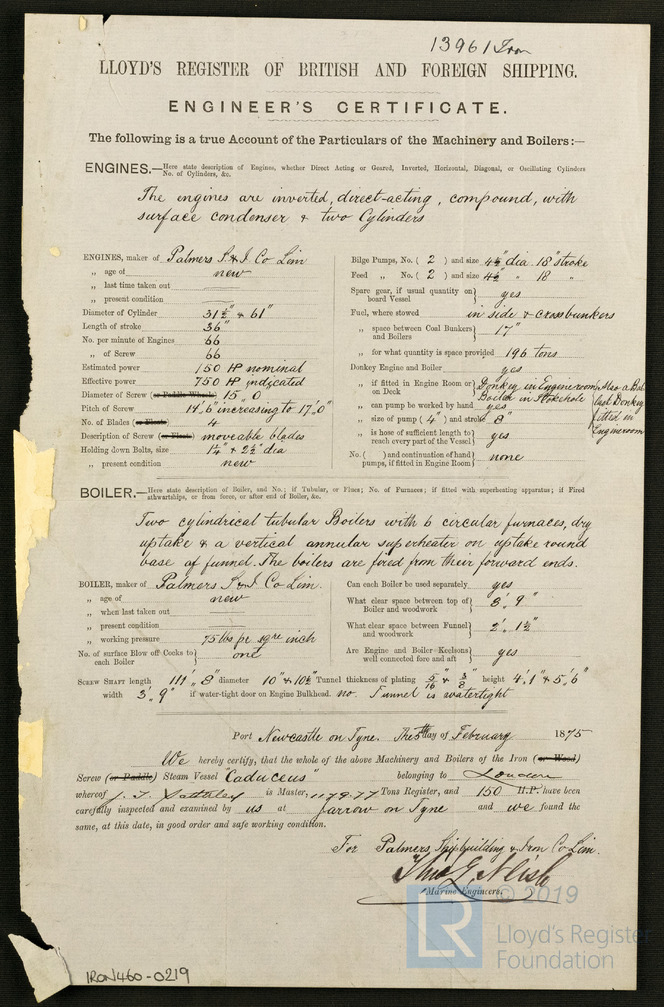 13961 Iron
LLOYD'S REGISTER OF BRITISH AND FOREIGN SHIPPING.
ENGINEER'S CERTIFICATE.
The following is a true Account of the Particulars of the Machinery and Boilers:—
ENGINES.—Here state description of Engines, whether Direct Acting or Geared, Inverted, Horizontal, Diagonal, or Oscillating Cylinders
No. of Cylinders, &c.
The engines are inverted, direct-acting, compound, with
surface condenser & two Cylinders
ENGINES, maker of Palmers S. & I. Co Lim
„ age of new
„ last time taken out
„ present condition
Diameter of Cylinder 31½" & 61"
Length of stroke 36"
No. per minute of Engines 66
„ of Screw 66
Estimated power 150 HP nominal
Effective power 750 HP indicated
Diameter of Screw (or Paddle Wheels) 15' 0
Pitch of Screw 14'.6" increasing to 17'.0"
No. of Blades (or Floats) 4
Description of Screw (or Floats) moveable blades
Holding down Bolts, size 1¼" & 2½" dia
„ present condition new
Bilge Pumps, No. ( 2 ) and size 4½" dia 18" stroke
Feed „ No. ( 2 ) and size 4½" „ 18 „
Spare gear, if usual quantity on board Vessel } yes
Fuel, where stowed in side & crossbunkers
„ space between Coal Bunkers and Boilers } 17"
„ for what quantity is space provided 196 tons
Donkey Engine and Boiler yes
„ if fitted in Engine Room or on Deck } Donkey in Engineroom, Boiler in Stokehole
Also a Ballast Donkey fitted in Engineroom
„ can pump be worked by hand yes
„ size of pump ( 4" ) and stroke 8"
„ is hose of sufficient length to reach every part of the Vessel } yes
No. ( ) and continuation of hand pumps, if fitted in Engine Room } none
BOILER.—Here state description of Boiler, and No.; if Tubular, or Flues; No. of Furnaces; if fitted with superheating apparatus; if Fired
athwartships, or from fore, or after end of Boiler, &c.
Two cylindrical tubular Boilers with 6 circular furnaces, dry
uptake & a vertical annular superheater on uptake round
base of funnel. The boilers are fired from their forward ends.
BOILER, maker of Palmers S. & I. Co Lim.
„ age of new
„ when last taken out
„ present condition
„ working pressure 75 lbs per sqre inch
No. of surface Blow off Cocks to each Boiler } one
Can each Boiler be used separately yes
What clear space between top of Boiler and woodwork } 3'. 9"
What clear space between Funnel and woodwork } 2'. 1½"
Are Engine and Boiler Keelsons well connected fore and aft } yes
SCREW SHAFT length 111'. 8" diameter 10" & 10½ Tunnel thickness of plating 5/16 & 3/8 height 4'.1" & 5'.6"
width 3'. 9" if water-tight door on Engine Bulkhead. no. Tunnel is watertight
Port Newcastle on Tyne. The 5th day of February 1875
We hereby certify, that the whole of the above Machinery and Boilers of the Iron (or Wood)
Screw (or Paddle) Steam Vessel "Caduceus" belonging to London
whereof J. T. is Master, 1179.77 Tons Register, and 150 H.P. have been
carefully inspected and examined by us at Jarrow on Tyne and we found the
same, at this date, in good order and safe working condition.
For Palmers Shipbuilding & Iron Co Lim.
Marine Engineers.
© 2019
LR
Lloyd's Register
Foundation
IRON460-0219